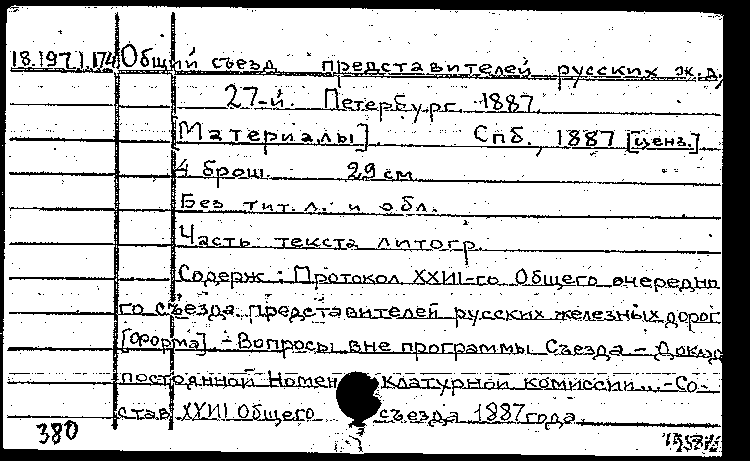 18.197 1.174 Общий съезд представителей русских ж.д.
27-й. Петербург. 1887.
[Материалы] Спб., 1887 [ценз.]
4 брош. 29 см
Без тит. л. и обл.
Часть текста литогр.
Содерж: Протокол XXVII-го Общего очередно
го съезда представителей русских железных дорог
[Форма] - Вопросы вне программы Съезда - Доклад
постоянной Номенклатурной комиссии... - Со-
став XXVII Общего съезда 1887 года.
380